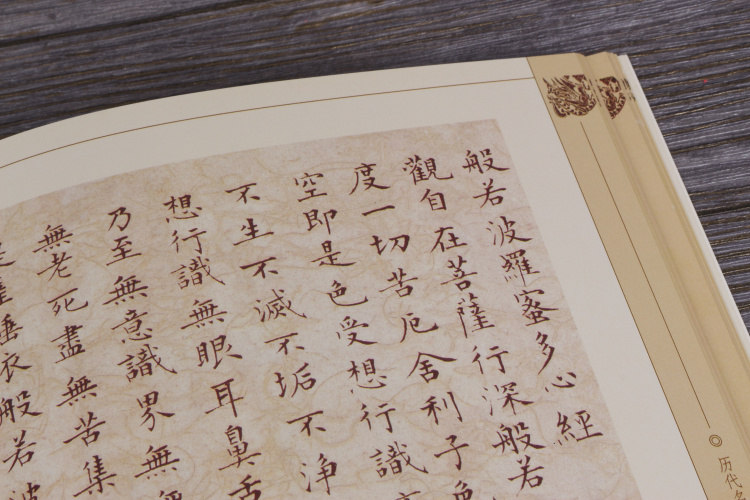 般若波羅蜜多心經
觀自在菩薩行深般若
度一切苦厄舍利子色
空即是色受想行識
不生不滅不垢不淨
想行識無眼耳鼻舌
乃至無意識界無
無老死盡無苦集
般若
历代